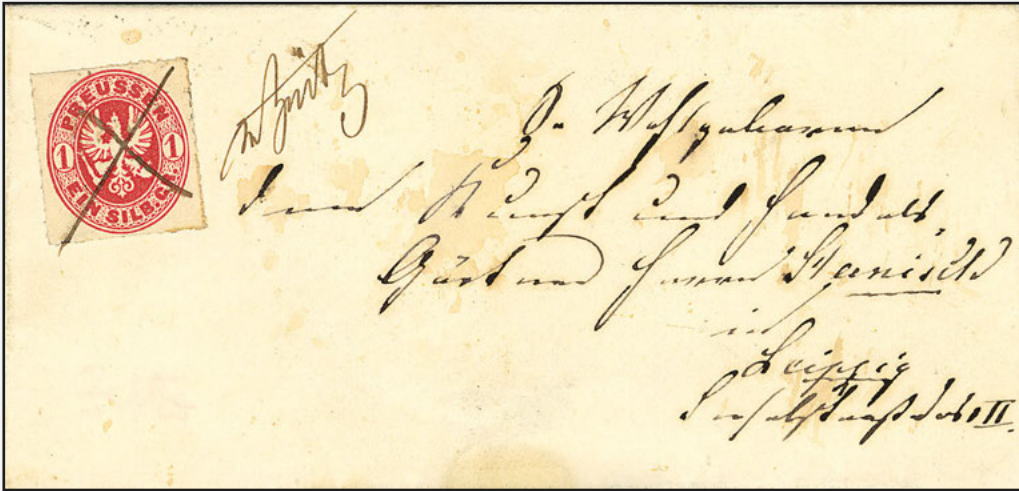 PREUSSEN
1 1
EIN SILB.GR.
Sr. Wohlgeboren
dem Kunst und Handels
Gärtner Herrn
in
Leipzig
II.